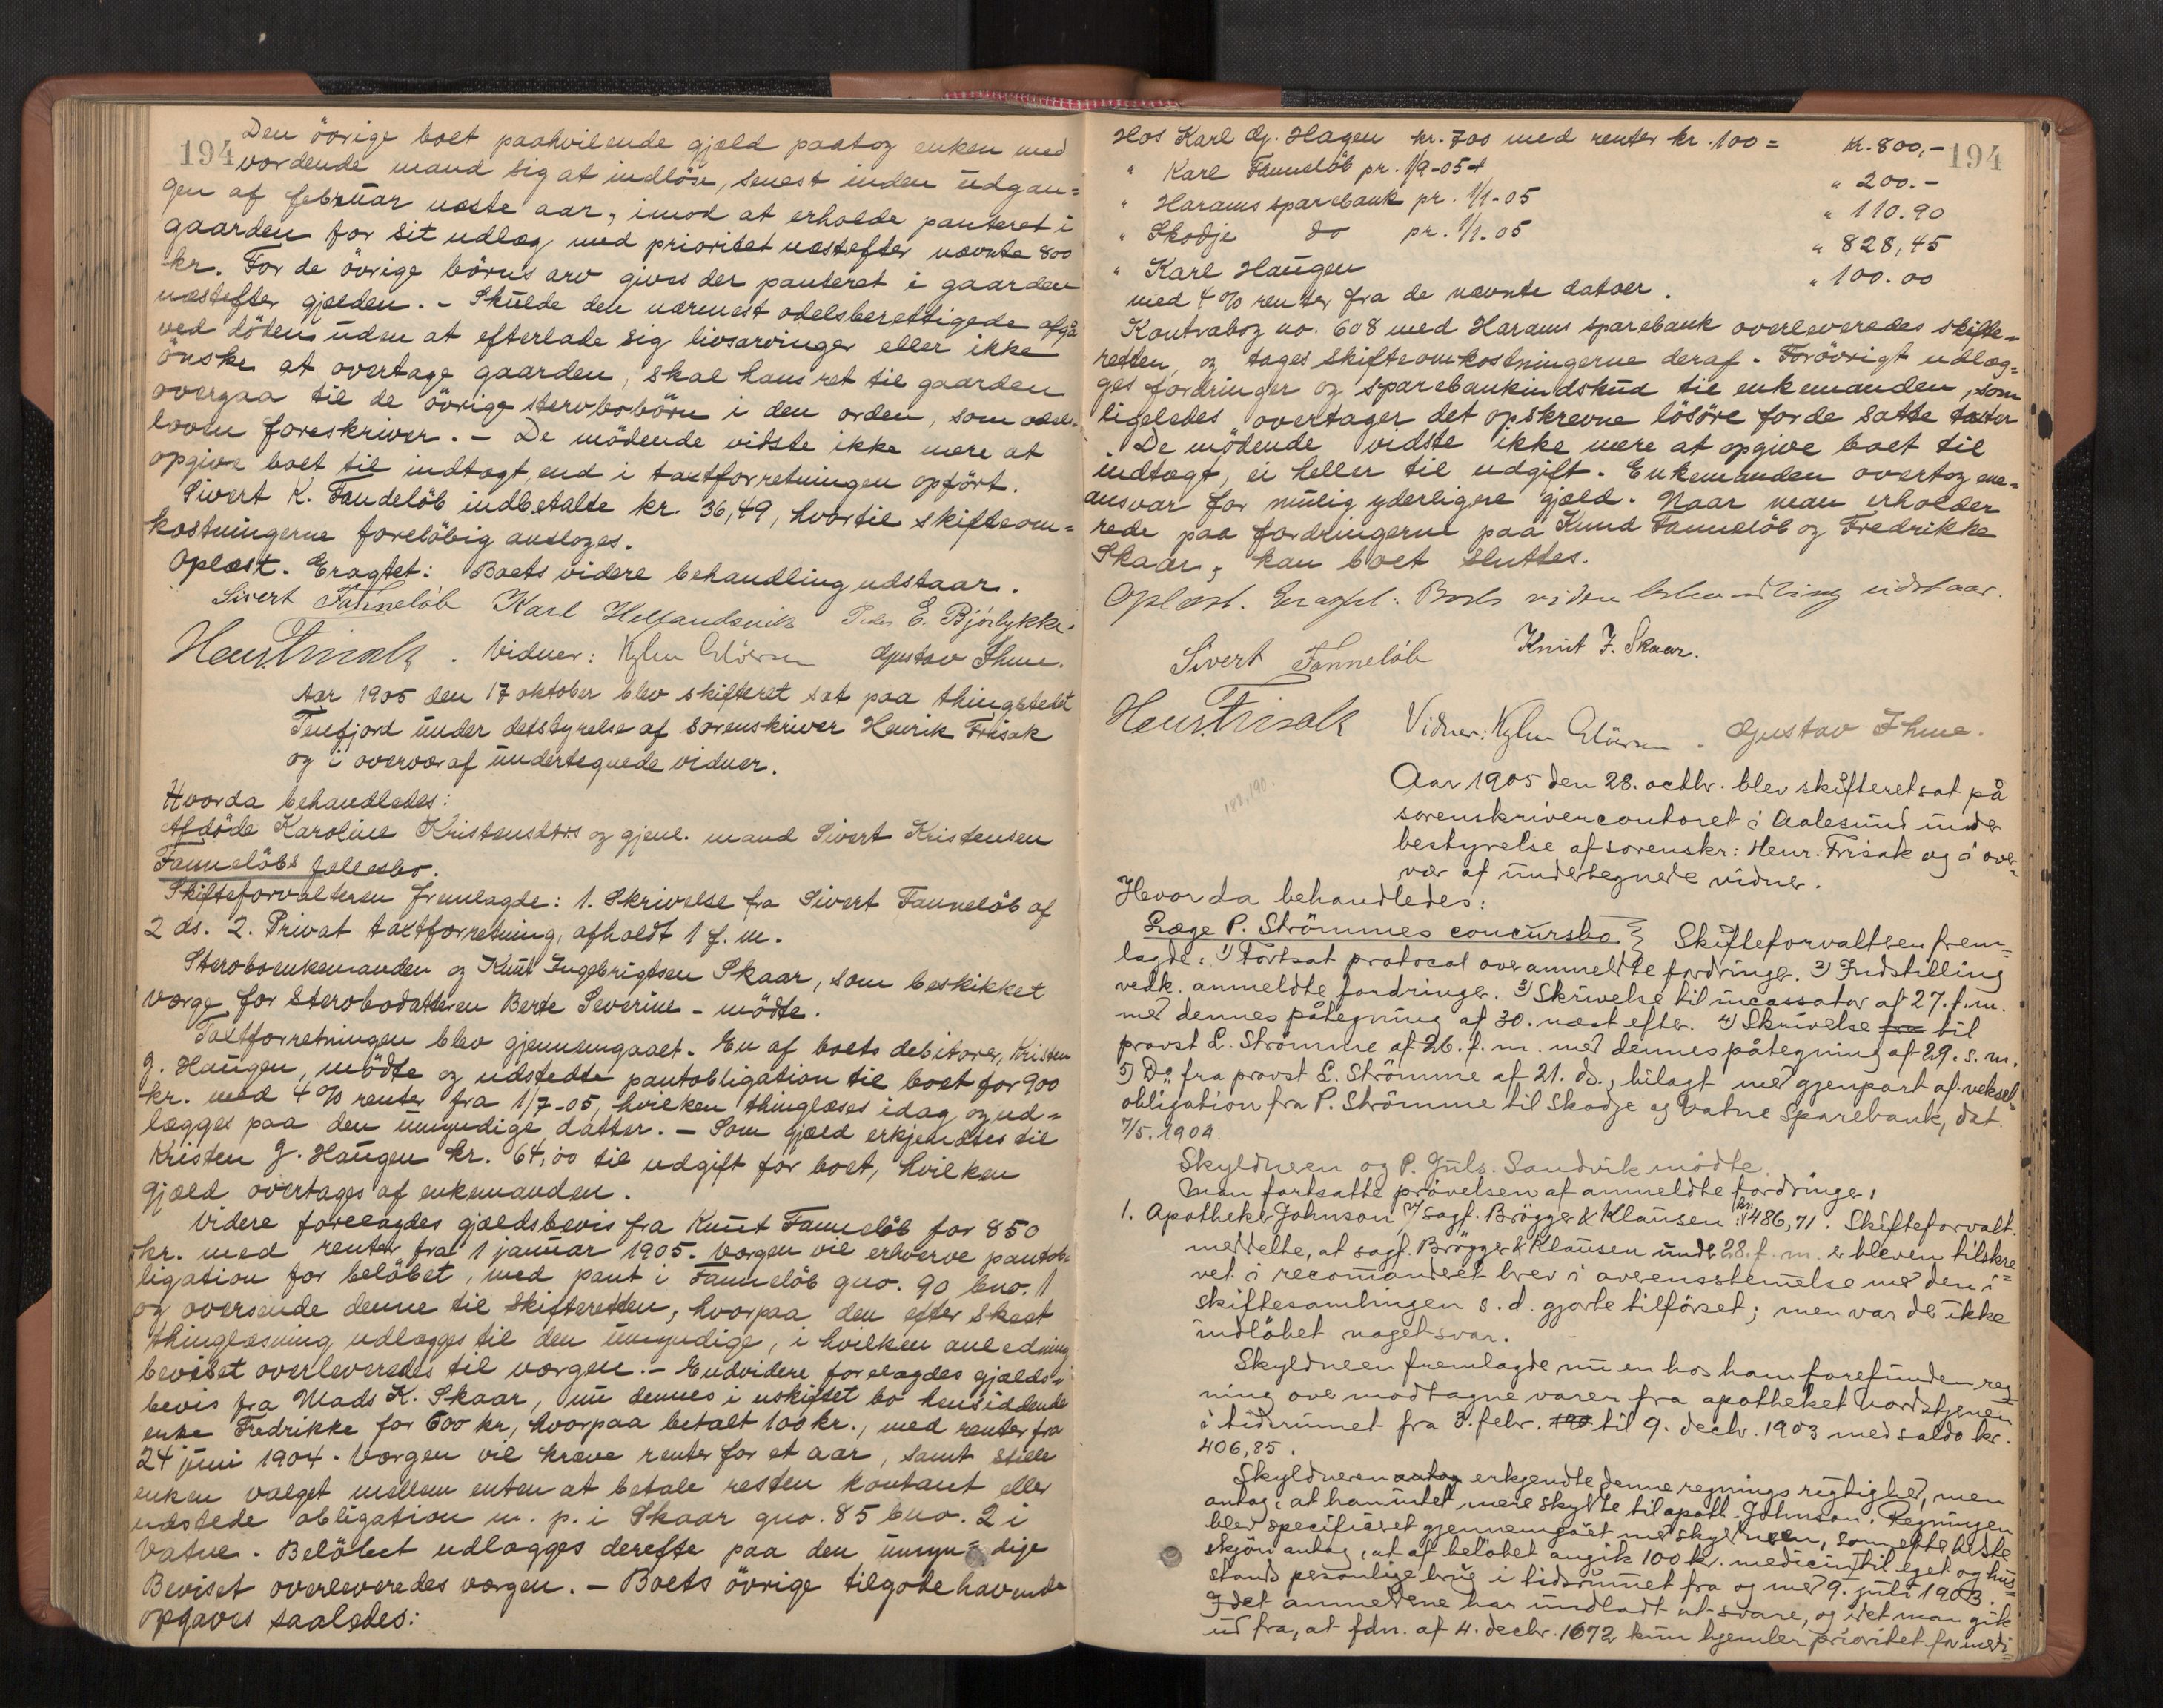 194
Den övrige boet paahvilende gjæld paatog enken med
vordende mand sig at indlöse, senest inden udgan=
gen af februar næste aar, imod at erholde panteret i
gaarden for sit udlæg med prioritet næstefter nævnte 800
kr. For de övrige börns arv gives der panteret i gaarden
næstefter gjælden. - Skulde den nærmest odelsberettigede afgå
ved döden uden at efterlade sig livsarvinger eller ikke
önske at overtage gaarden, skal hans ret til gaarden
overgaa til de övrige stervbobörn i den orden, som odels=
loven foreskriver. - De mödende vidste ikke mere at
opgive boet til indtægt, end i taxtforretningen opfört.
Sivert K. Fandelöb indbetalte kr. 36,49, hvortil skifteom=
kostningerne forelöbig ansloges.
Oplæst. Eragtet: Boets videre behandling udstaar.
Sivert Fannelöb Karl Hellandsvik Peder E. Björlykke.
Henr Frisak. Vidner: Gustav Ihme.
Aar 1905 den 17 oktober blev skifteret sat paa thingstedet
Tenfjord under bestyrelse af sorenskriver Henrik Frisak
og i overvær af undertegnede vidner.
Hvorda behandledes:
Afdöde Karoline Kristensdtrs og gjenl. mand Sivert Kristensen
Fannelöbs fællesbo.
Skifteforvalteren fremlagde: 1. Skrivelse fra Sivert Fannelöb af
2 ds. 2. Privat taxtforretning, afholdt 1 f. m.
Stervboenkemanden og Knut Ingebrigtsen Skaar, som beskikket
værge for stervbodatteren Berte Severine - mödte.
Taxtforretningen blev gjennemgaaet. En af boets debitorer, Kristen
J. Haugen, mödte og udstedte pantobligation til boet for 900
kr. med 4 % renter fra 1/7-05, hvilken thinglæses idag og ud=
lægges paa den umyndige datter. - Som gjæld erkjendtes til
Kristen J. Haugen kr. 64,00 til udgift for boet, hvilken
gjæld overtages af enkemanden.
Videre forelagdes gjældsbevis fra Knut Fannelöb for 850
kr. med renter fra 1 januar 1905. Værgen vil erhverve pantob=
ligation for belöbet, med pant i Fannelöb gno. 90 bno. 1
og oversende denne til skifteretten, hvorpaa den efter skeet
thinglæsning udlægges til den umyndige, i hvilken anledning
beviset overleveredes til værgen. - Endvidere forelagdes gjælds=
bevis fra Mads K. Skaar, nu dennes i uskiftet bo hensiddende
enke Fredrikke for 600 kr., hvorpaa betalt 100 kr., med renter fra
24 juni 1904. Værgen vil kræve renter for et aar, samt stille
enken valget mellem enten at betale resten kontant eller
udstede obligation m. p. i Skaar gno. 85 bno. 2 i
Vatne. Belöbet udlægges derefter paa den umyn=dige
Beviset overleveredes værgen. - Boets övrige tilgodehavende
opgaves saaledes:
194
Hos Karl G. Hagen kr. 700 med renter kr. 100 = kr. 800,-
" Karl Fannelöb pr. 1/9-05 " 200.-
" Harams sparebank pr. 1/1-05 " 110.90
" Skodje do pr. 1/1.05 " 828,45
" Karl Haugen " 100.00
med 4 % renter fra de nævnte datoer.
Kontrabog no. 608 med Harams sparebank overleveredes skifte=
retten, og tages skifteomkostningerne deraf. Forövrigt udlæg=
ges fordringer og sparebankindskud til enkemanden, som
ligeledes overtager det opskrevne lösöre for de satte taxter
De mödende vidste ikke mere at opgive boet til
indtægt, ei heller til udgift. Enkemanden overtog ene=
ansvar for mulig yderligere gjæld. Naar man erholder
rede paa fordringerne paa Knud Fannelöb og Fredrikke
Skaar, kan boet sluttes.
Oplæst. Eragtet: Boets videre behandling udstaar.
Sivert Fannelöb Knut I. Skaar.
Henr Frisak Vidner: Gustav Ihme.
188, 190.
Aar 1905 den 28. octbr. blev skifteret sat på
sorenskrivercontoret i Aalesund under
bestyrelse af sorenskr: Henr: Frisak og i over=
vær af undertegnede vidner.
Hvor da behandledes:
Læge P. Strömmes concursbo. Skifteforvalteren frem=
lagde: 1) Fortsat protocol over anmeldte fordringer. 2) Indstilling
vedk. anmeldte fordringer. 3) Skrivelse til incassator af 27. f. m.
med dennes påtegning af 30. næst efter. 4) Skrivelse fra til
provst L. Strömme af 26. f. m. med dennes påtegning af 29. s. m.
5) Do fra provst L. Strömme af 21. ds., bilagt med gjenpart af veksel=
obligation fra P. Strömme til Skodje og Vatne Sparebank, dat.
7/5. 1904.
Skyldneren og P. Juls. Sandvik mödte.
Man fortsatte prövelsen af anmeldte fordringer.
1. Apotheker Johnson v/ sagf. Brögger & Klausen kr: 486,71. Skifteforvalt.
meddelte, at sagf. Brögger & Klausen under 28. f. m. er bleven tilskre=
vet i recomanderet brev i overensstemelse med den i
skiftesamlingen s. d. gjorte tilförsel; men var der ikke
indlöbet noget svar.
Skyldneren fremlagde nu en hos ham forefunden reg=
ning over modtagne varer fra apotheket Nordstjernen
i tidsrummet fra 3. febr. 190 til 9. decbr. 1903 med saldo kr.
406,85.
Skyldneren antog erkjendte denne regnings rigtighed, men
antog, at han intet mere skyldte til apoth. Johnson. Regningen
blev specificeret gjennemgået med skyldneren, som efter bedste
skjön antog, at af belöbet angik 100 kr. medicin til eget og hus=
stands personlige brug i tidsrummet fra og med 9. juli 1903.
Idet anmelderne har undladt at svare, og idet man gik
ud fra, at fdn. af 4. decbr. 1672 kun hjemler prioritet for medi=